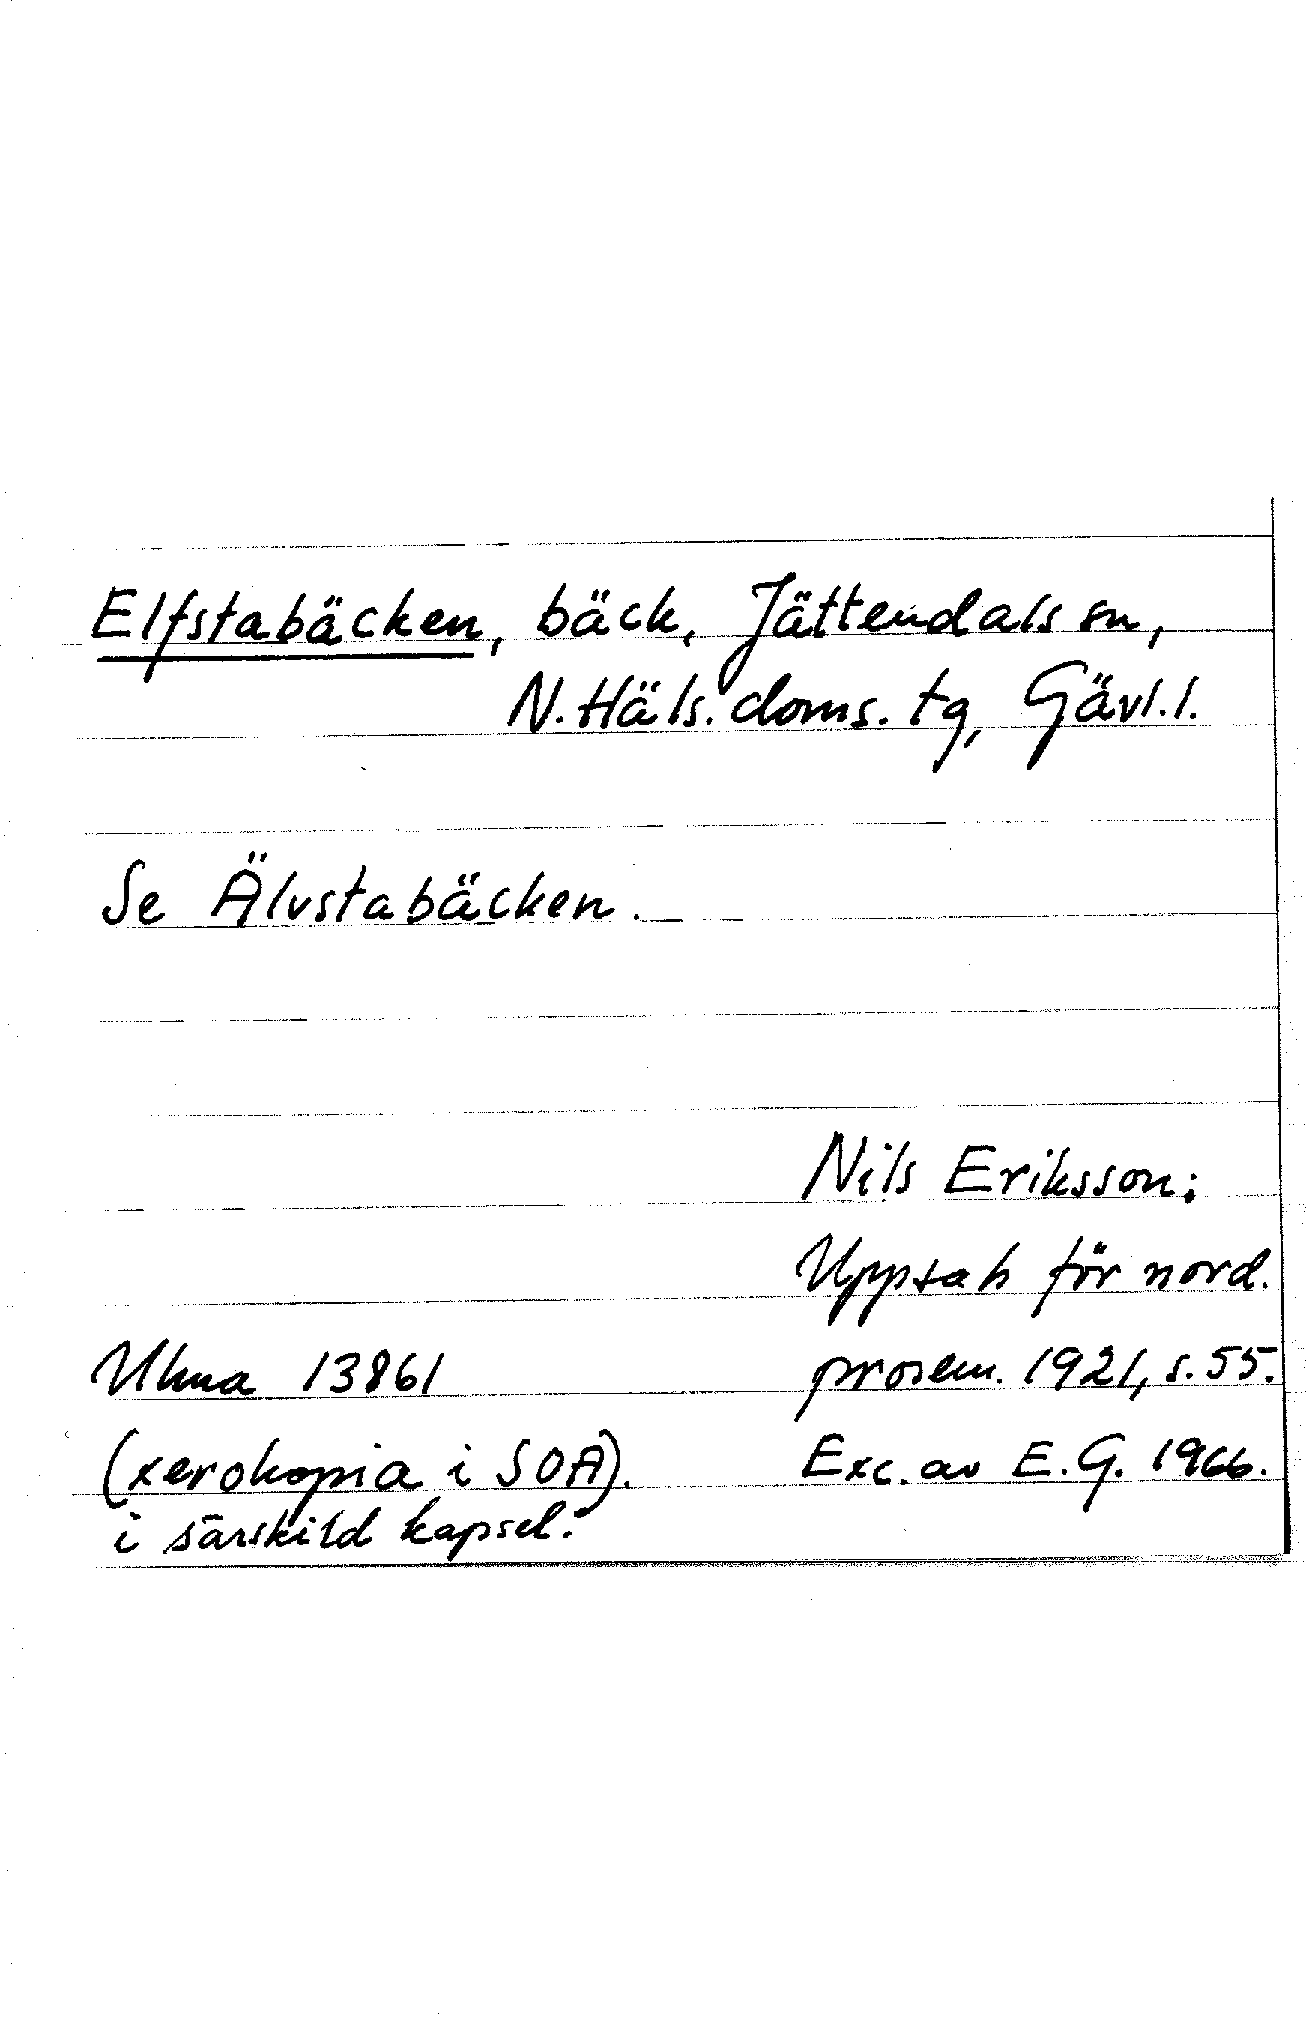 Elfstabäcken, bäck, Jättendals sn,
N. Häls. doms. tg, Gävl. l.
Se Älvstabäcken.
Nils Eriksson:
Uppsats för nord.
Ulma 13861 prosem. 1921, s. 55.
(xerokopia i SOA). Exc. av E. G. 1966.
i särskild kapsel.